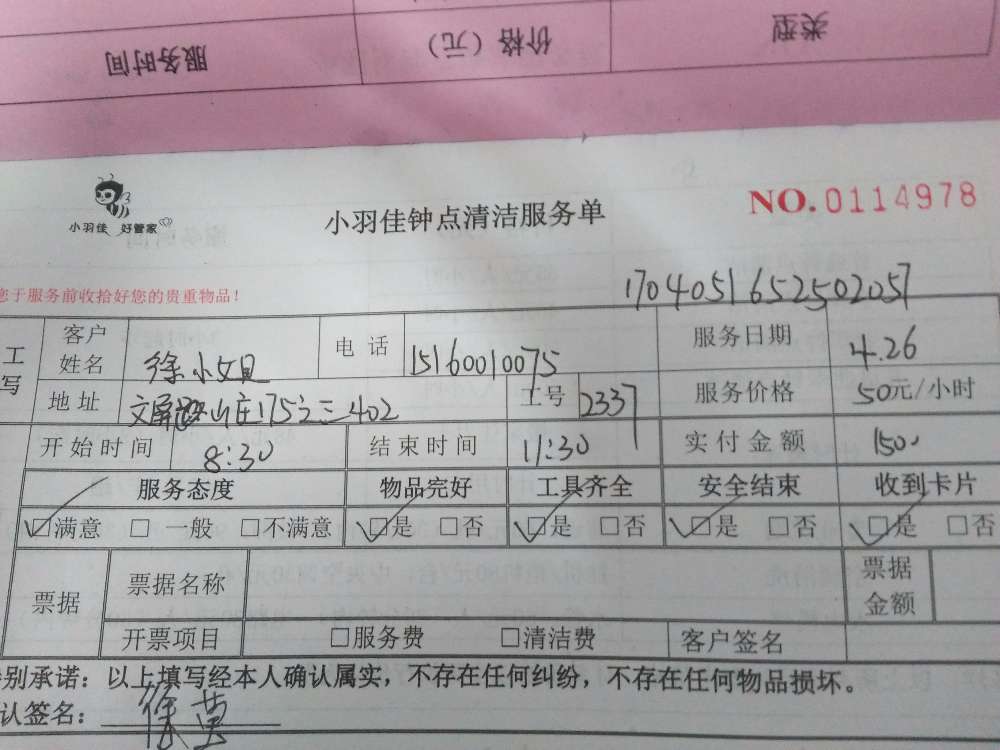 服务时间 价格（元） 类型
小羽佳 好管家
小羽佳钟点清洁服务单
NO.0114978
您于服务前收拾好您的贵重物品！
1704051652502057
工写 客户姓名 徐小姐 电话 15160010075 服务日期 4.26
地址 文屏山庄175之三402 工号 2337 服务价格 50元/小时
开始时间 8:30 结束时间 11:30 实付金额 150.
服务态度 物品完好 工具齐全 安全结束 收到卡片
☑满意 □一般 □不满意 ☑是 □否 ☑是 □否 ☑是 □否 ☑是 □否
票据 票据名称 票据金额
开票项目 □服务费 □清洁费 客户签名
别承诺：以上填写经本人确认属实，不存在任何纠纷，不存在任何物品损坏。
认签名：徐